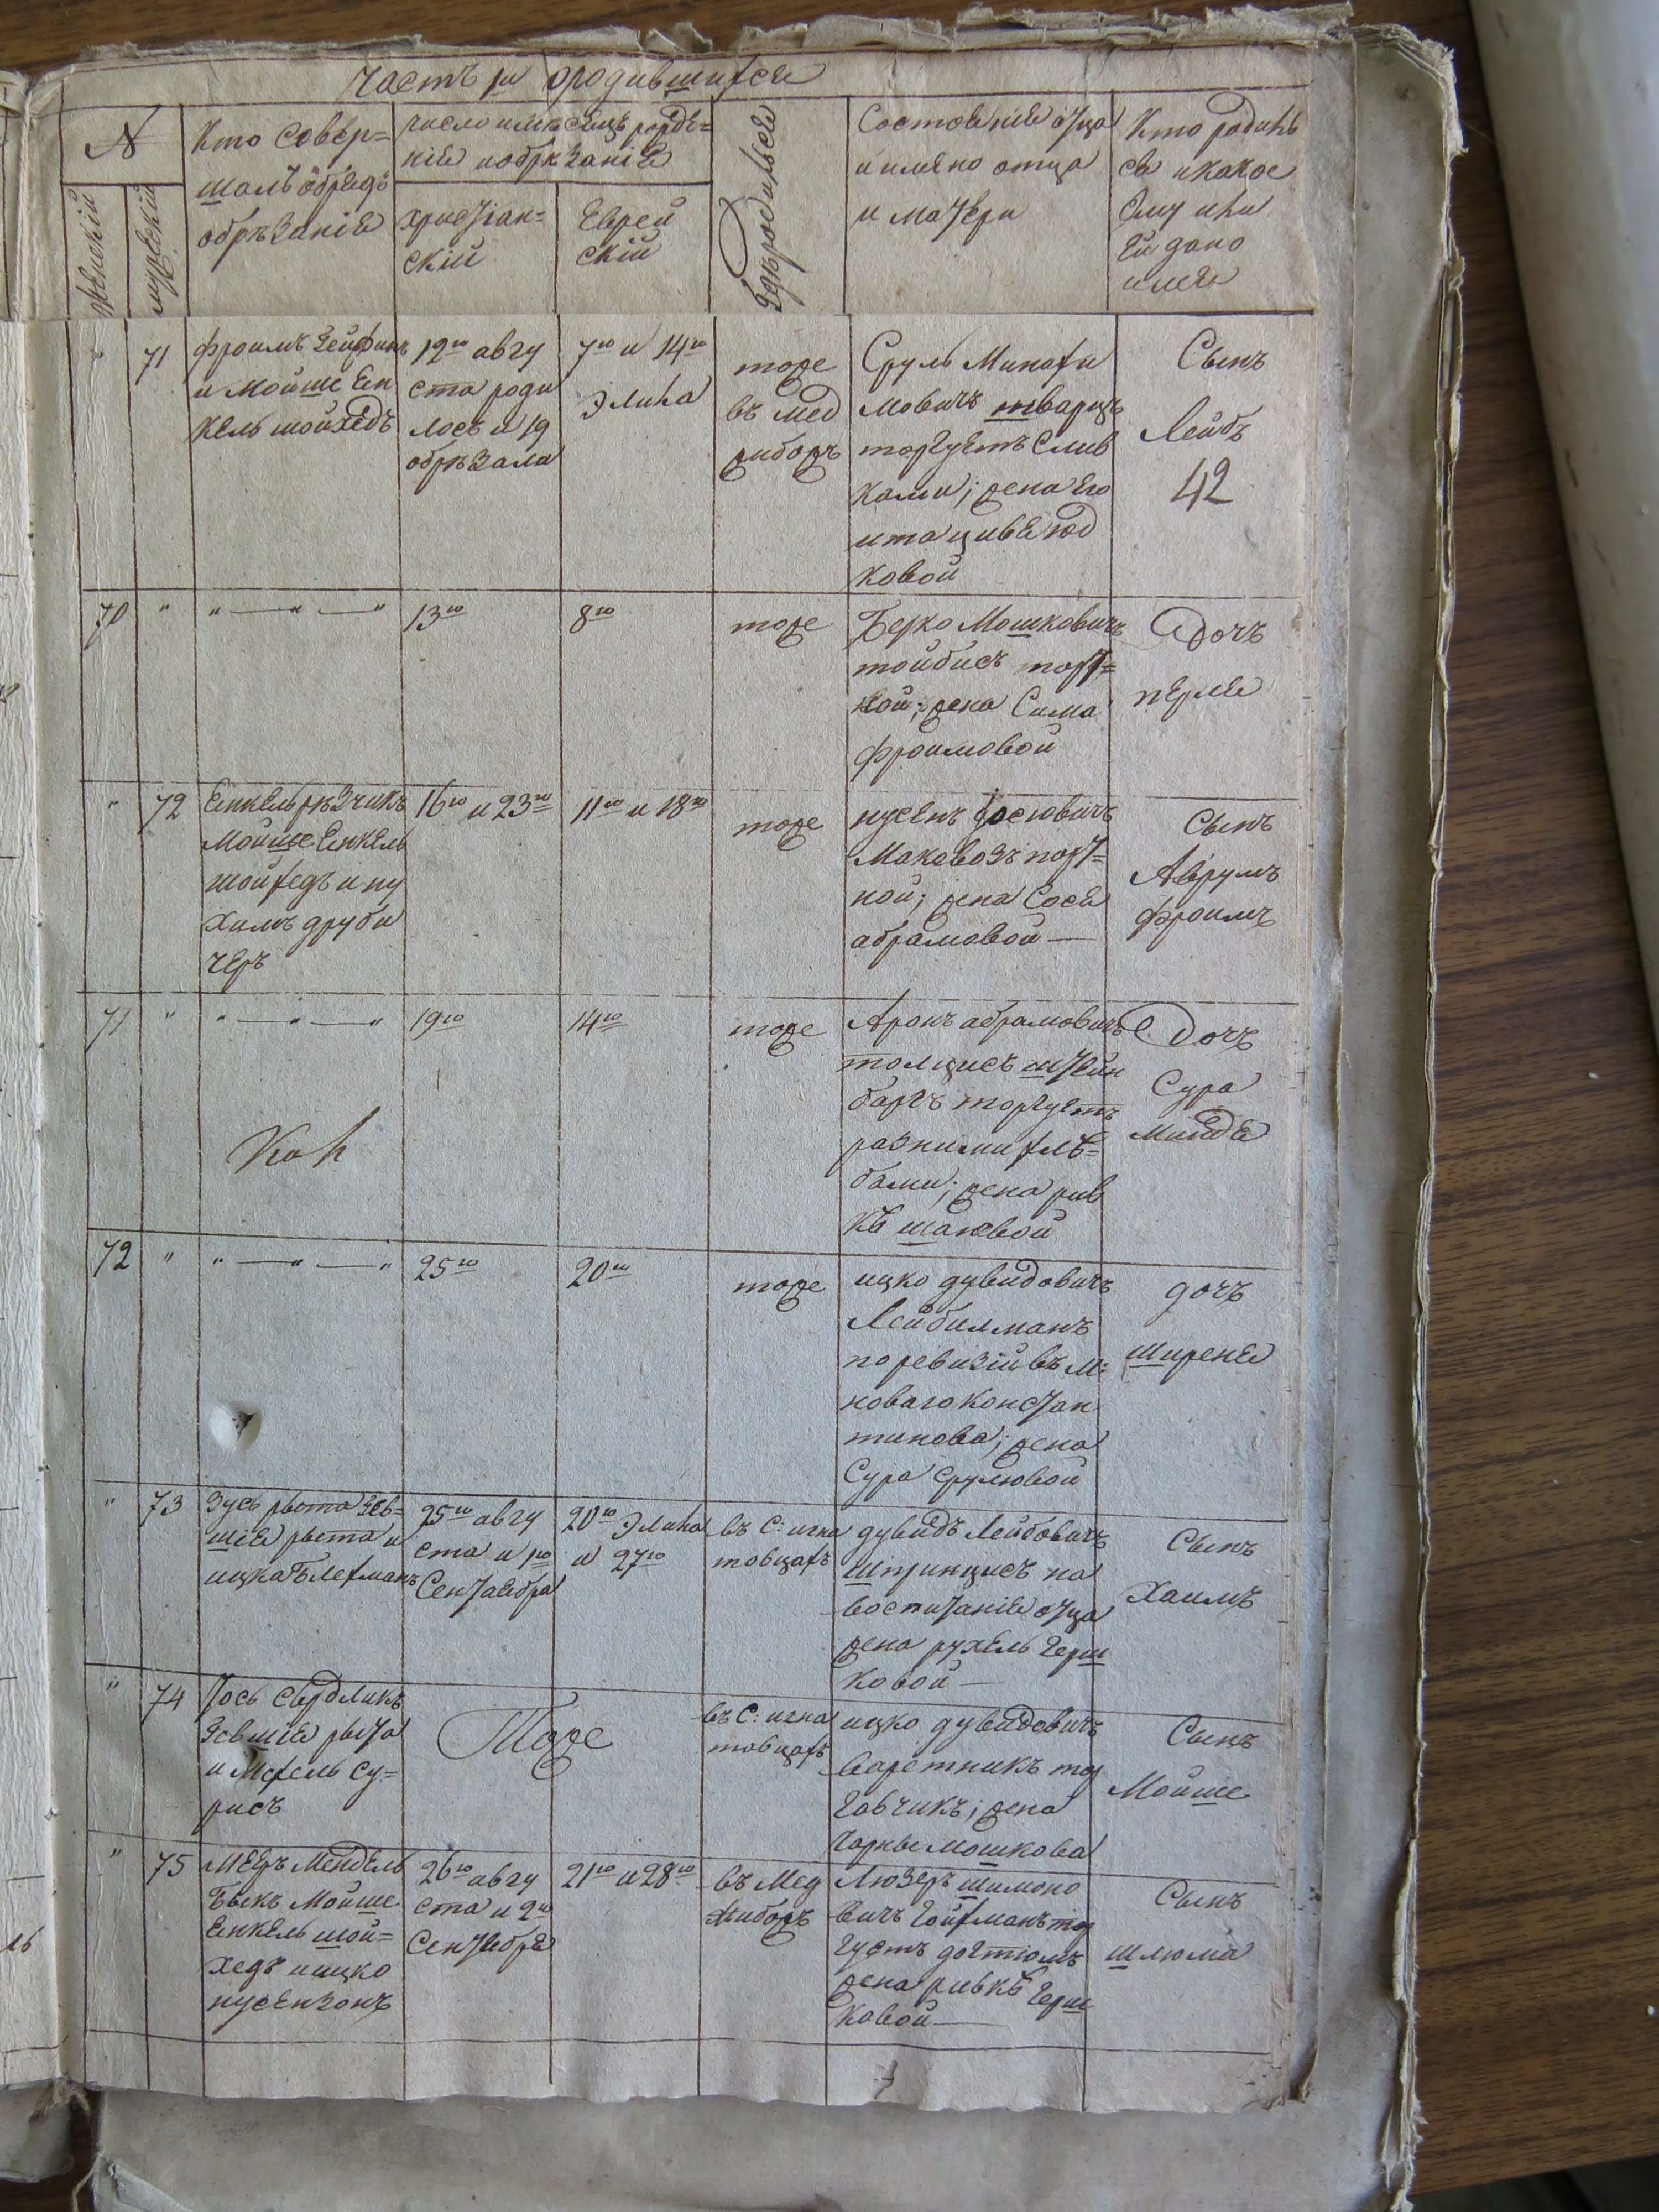 Часть 1я ородившихся
№
Женскій
мужескій
Кто Совер=
шалъ обрядъ
обрѣзанія
число имѣсяцъ рожде=
нія иобрѣзанія
христіан=
скій
Еврей
скій
Гдѣ родился
Состояніе отца
и имяно отца
и матери
Кто родил
ся икакое
Ему или
Ей дано
имя
" 71
фроимъ Зейфинъ
и мойше Ен
кель шойхедъ
12го авгу
ста роди
лось и 19
обрѣзала
7го и 14го
Элила
тоже
въ мед
жибожъ
Сруль Минахи
мовичъ шварцъ
торгуетъ Слив
ками; жена Его
ита циве юд
ковой
Сынъ
Лейбъ
42
70 " " — " — "
13го
8го
тоже
Берко Мошковичъ
тойбисъ порт=
ной; жена Сима
фроимовой
Дочъ
перля
" 72
Енкель рѣзчикъ
Мойше Енкель
шойхедъ и ну
химъ друби
черъ
16го и 23го
11го и 18го
тоже
нусенъ Иосіовичъ
Маковозъ порт=
ной; жена Сося
абрамовой —
Сынъ
Аврумъ
фроимъ
71 " " — " — "
19го
14го
тоже
Аронъ абрамовичъ
толцисъ штейн
баргъ торгуетъ
разними хлѣ=
бами; жена рив
кѣ шаювой
Дочъ
Сура
Миндя
72 " " — " — "
25го
20го
тоже
ицко дувидовичъ
Лейбилманъ
поревизій въ М:
новаго констан
тинова; жена
Сура Срулювой
дочъ
Ширеня
" 73
Зусь рыта Зев=
шія рыта и
ицка Блехманъ
25го авгу
ста и 1го
Сентаября
20го Элила
и 27го
въ С: игна
товцахъ
дувидъ Лейбовичъ
Штринцисъ на
воспитаніи отца
жена рухель Герш
ковой —
Сынъ
Хаимъ
" 74
Иось Свердликъ
Зевшія рыта
и Мехель Су=
рисъ
Тоже
въ С: игна
товцахъ
ицко дувидовичъ
варетникъ тор
говчикъ; жена
Чарны мошкова
Сынъ
Мойше
" 75
Мееръ Мендель
Быкъ Мойше
Енкель шой=
хедъ иицко
нусензонъ
26го авгу
ста и 2го
Сентября
21го и 28го
въ Мед
жибожъ
Люзеръ шимоно
вичъ Гойхманъ тор
гуетъ догтюмъ
жена ривкѣ Герш
ковой —
Сынъ
Шлюма